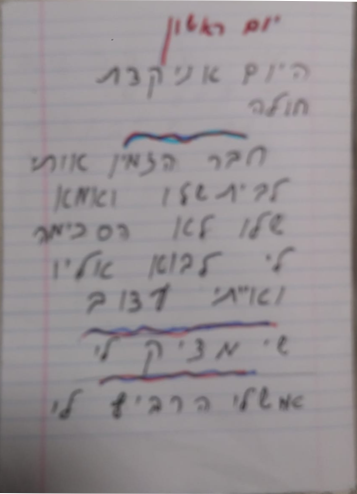 יום ראשון
היום אני קצת
חולה
חבר הזמין אותי
לבית שלו ואמא
שלו לא הסכימה
לי לבוא אליו
ואייתי עצוב
שי מציק לי
אמשלי הרביץ לי